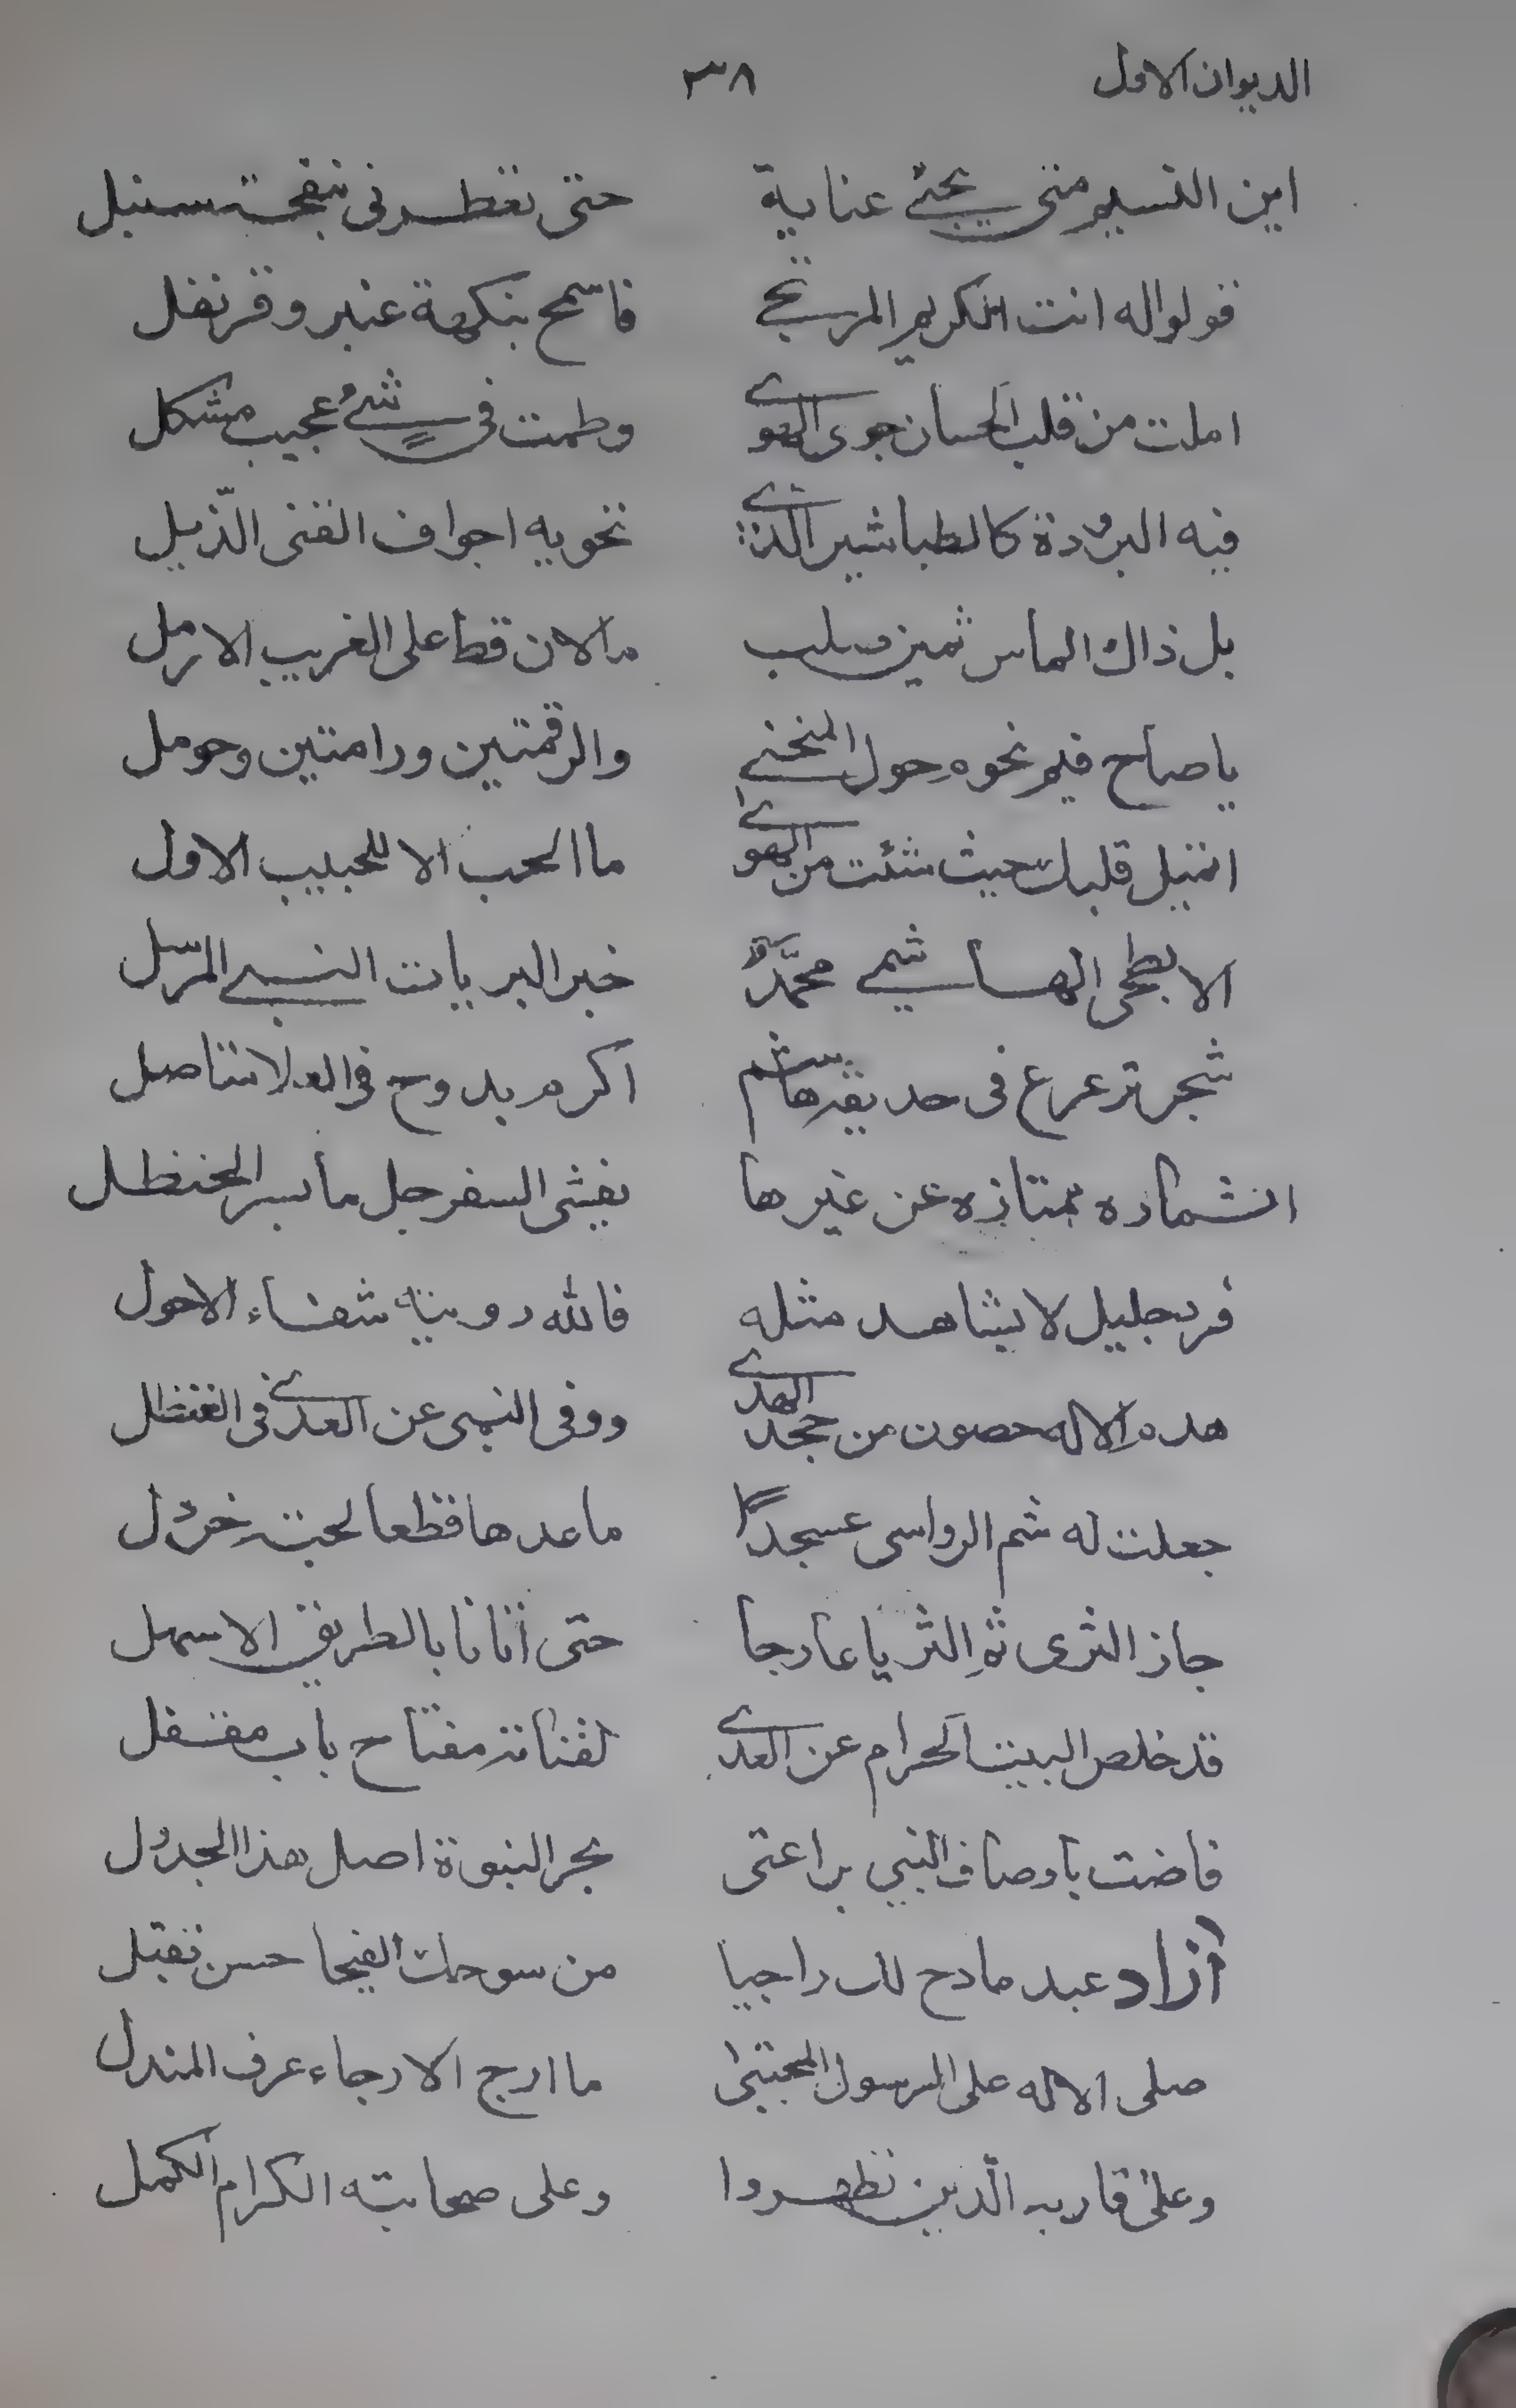 الديوان الاول ٣٨
اين النسيم متى يجئ عناية حتى تعطرنى بنفحة سنبل
قولوا له انت الكريم المرتجى فاسمح بنكهة عنبر وقرنفل
املت من قلب الحسان جوى الهوى وطمعت فى شئ عجيب مشكل
فيه البرودة كالطباشير الذى تحويه اجواف القنى الذبل
بل ذاك الماس ثمين صلب مالان قط على الغريب الارمل
يا صاح فيم نحوم حول المنحنى والرقمتين ورامتين وحومل
انتيل قلبك حيث شئت من الهوى ما الحب الا للحبيب الاول
الابطحى الهاشمى محمد خير البريات النبى المرسل
شجر ترعرع فى حديقة هاشم اكرم بدوح فى العلا متاصل
اثماره ممتازه عن غيرها يفشى السفرجل ما يسر الحنظل
فرد جليل لا يشاهد مثله فالله رويته شفاء الاحول
هدم الاله حصون من جحد الهدى ووقى النبى عن العدى فى القنطل
جعلت له شم الرواسى عسجدا ما عدها قطعا لحبة خردل
جاز الثرى ثم الثريا عارجا حتى اتانا بالطريق الاسهل
قد خلص البيت الحرام عن العدى لقناته مفتاح باب مقفل
فاضت باوصاف النبى يراعتى بحر النبوة اصل هذا الجدول
آزاد عبد مادح لك راجيا من سوحك الفيحا حسن تقبل
صلى الاله على الرسول المجتبى ما ارج الارجاء عرف المندل
وعلى اقاربه الذين تطهروا وعلى صحابته الكرام الكمل